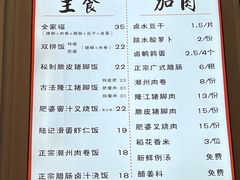 主食
全家福 35
双拼饭 22
秘制脆皮猪脚饭 22
古法隆江猪脚饭 20
肥婆蜜汁叉烧饭 20
陆记滑蛋虾仁饭 19
正宗潮州肉卷饭 18
正宗腊肠卤汁浇饭 18
加肉
卤水豆干 1.5/片
跳水酸萝卜 2/份
卤鹌鹑蛋 2.5/4个
正宗广式腊肠 6/根
潮州肉卷 8/份
隆江猪脚肉 10/份
脆皮猪脚肉 10/份
肥婆叉烧肉 10/份
稻花香米 3/位
新鲜例汤 免费
醋姜料 免费